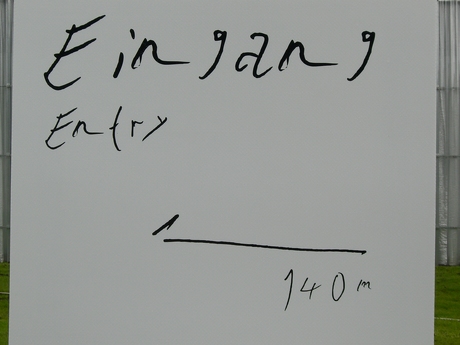 Eingang
Entry
140 m